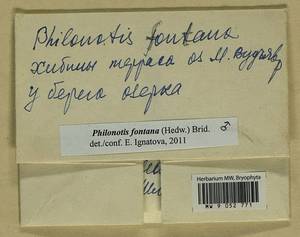 Philonotis fontana
хибины терраса оз М. Вудъявр
у берега озерка
Philonotis fontana (Hedw.) Brid. ♂
det./conf. E. Ignatova, 2011
Herbarium MW, Bryophyta
MW 9 052 771